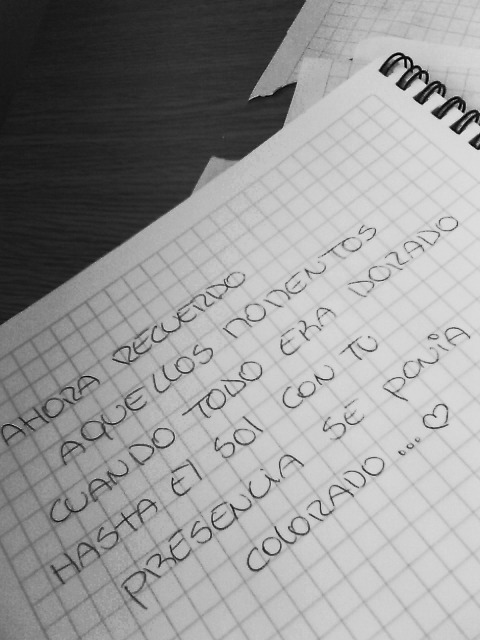 AHORA RECUERDO
AQUELLOS MOMENTOS
CUANDO TODO ERA DORADO
HASTA El SOl CON TU
PRESENCiA SE PONiA
COlORADO...♡